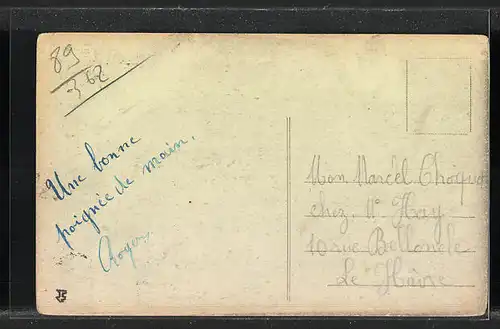 89
362
Une bonne
poignée de main.
Roger
Mon Marcel Choquet
chez Mr Hay
10 rue Belloncle
Le Hâvre